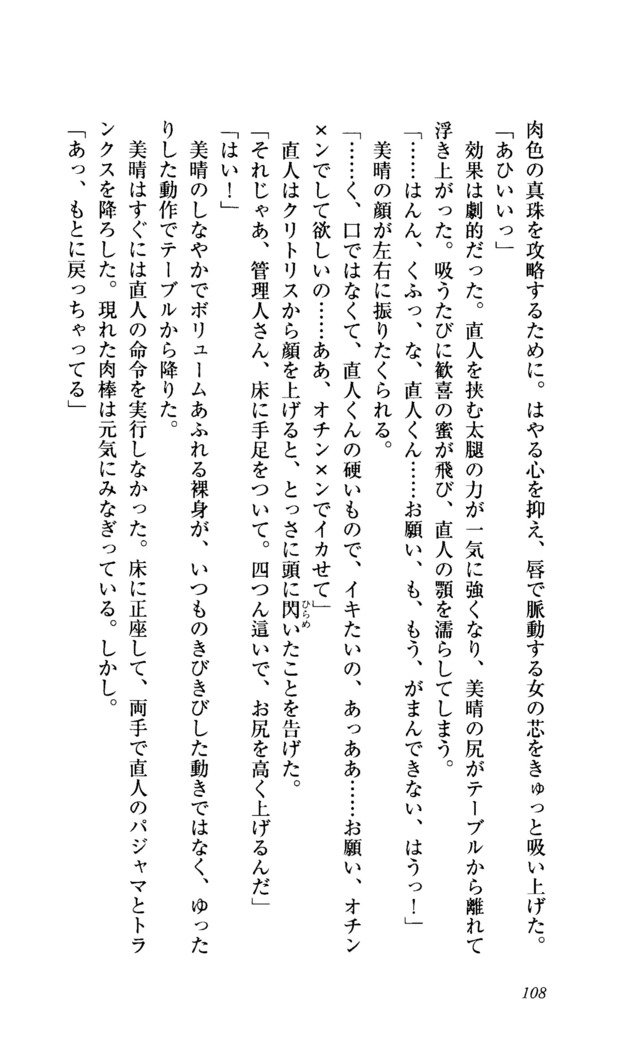 肉色の真珠を攻略するために。はやる心を抑え、唇で脈動する女の芯をきゅっと吸い上げた。
「あひいいっ」
効果は劇的だった。直人を挟む太腿の力が一気に強くなり、美晴の尻がテーブルから離れて
浮き上がった。吸うたびに歓喜の蜜が飛び、直人の顎を濡らしてしまう。
「……はんん、くふっ、な、直人くん……お願い、も、もう、がまんできない、はうっ！」
美晴の顔が左右に振りたくられる。
「……く、口ではなくて、直人くんの硬いもので、イキたいの、あっああ……お願い、オチン
×ンでして欲しいの……ああ、オチン×ンでイカせて」
直人はクリトリスから顔を上げると、とっさに頭に閃いたことを告げた。
ひらめ
「それじゃあ、管理人さん、床に手足をついて。四つん這いで、お尻を高く上げるんだ」
「はい！」
美晴のしなやかでボリュームあふれる裸身が、いつものきびきびした動きではなく、ゆった
りした動作でテーブルから降りた。
美晴はすぐには直人の命令を実行しなかった。床に正座して、両手で直人のパジャマとトラ
ンクスを降ろした。現れた肉棒は元気にみなぎっている。しかし。
「あっ、もとに戻っちゃってる」
108